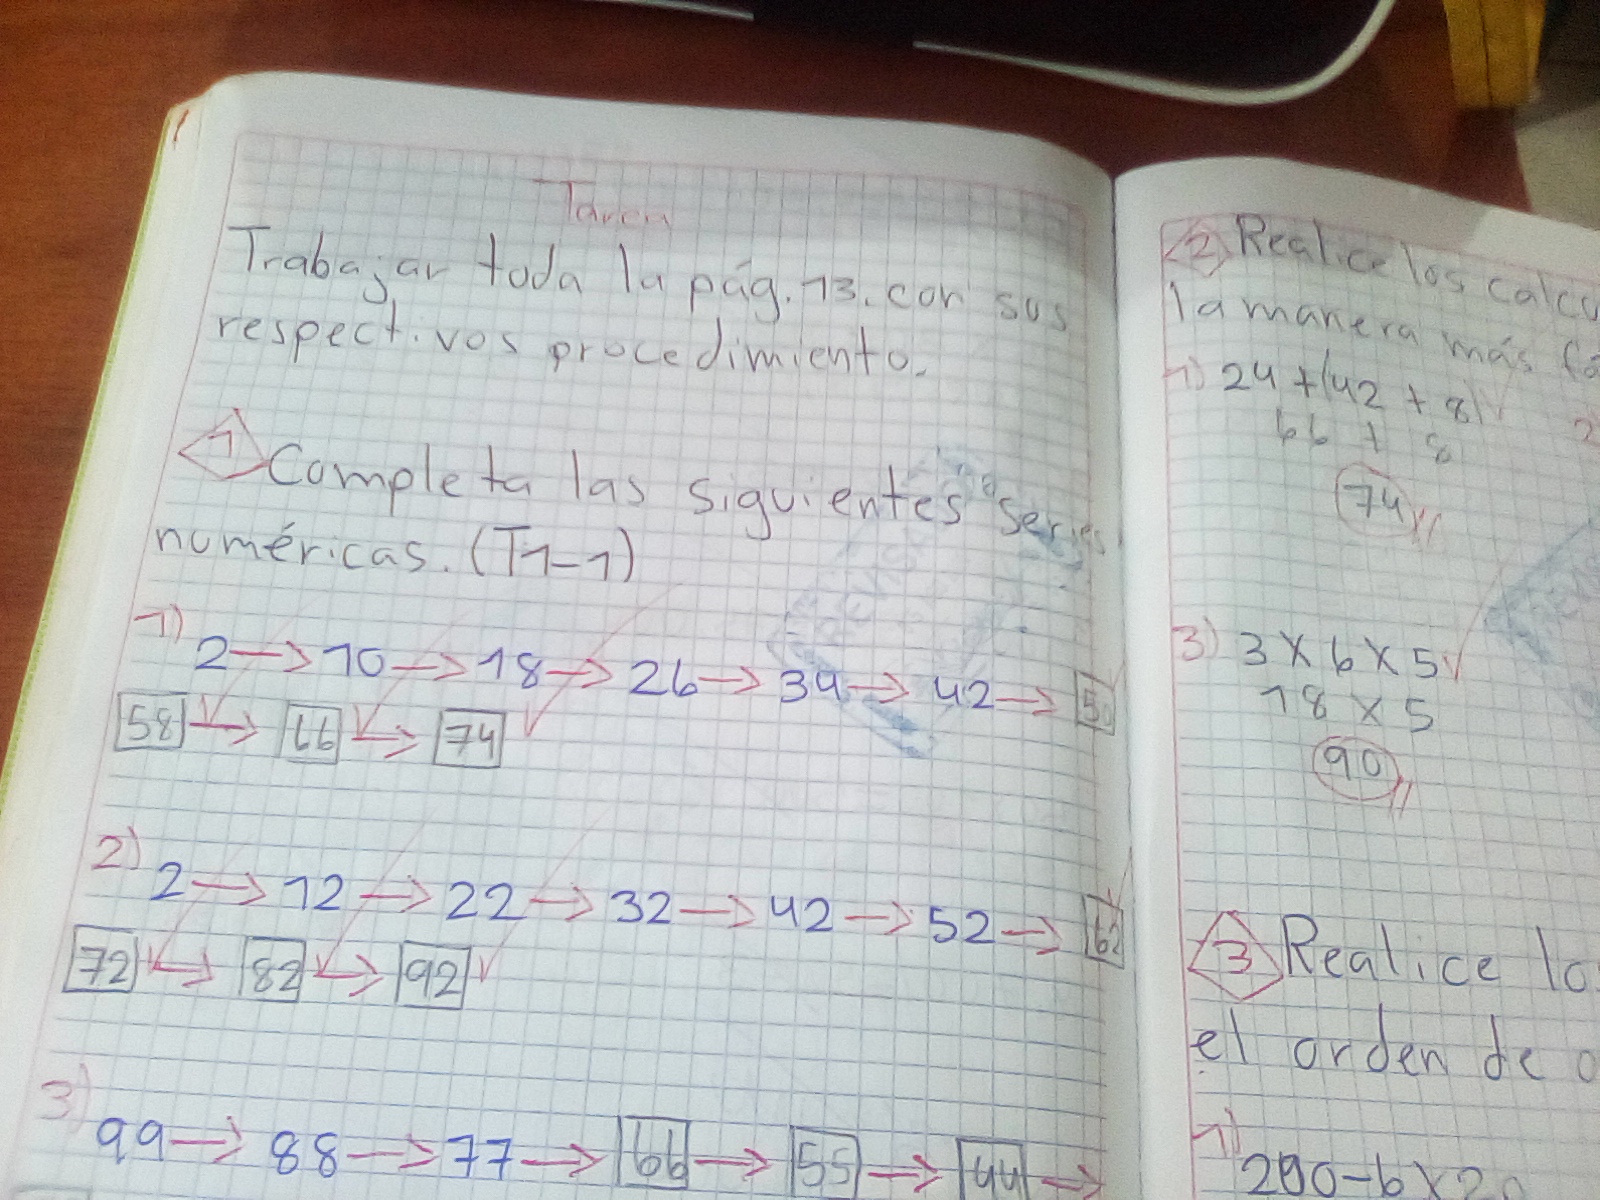 Tarea
Trabajar toda la pág. 13. con sus
respectivos procedimiento.
1 Completa las siguientes series
numéricas. (T1-1)
1) 2 → 10 → 18 → 26 → 34 → 42 → 50
58 → 66 → 74
2) 2 → 12 → 22 → 32 → 42 → 52 → 62
72 → 82 → 92
3) 99 → 88 → 77 → 66 → 55 → 44 →
2 Realice los calcu
la manera más fá
1) 24 + (42 + 8)
66 + 8
74
3) 3 x 6 x 5
18 x 5
90
3 Realice lo
el orden de o
1) 200 - 6 x 20